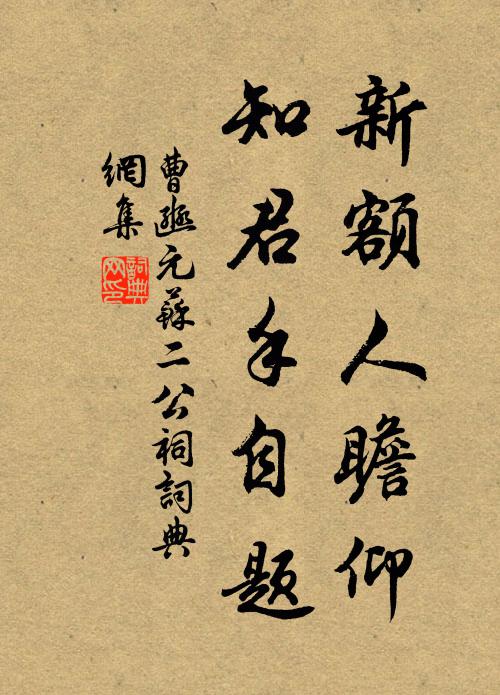 新額人瞻仰
知君手自題
曹豳元蘇二公祠詞典
網集
詞典网印